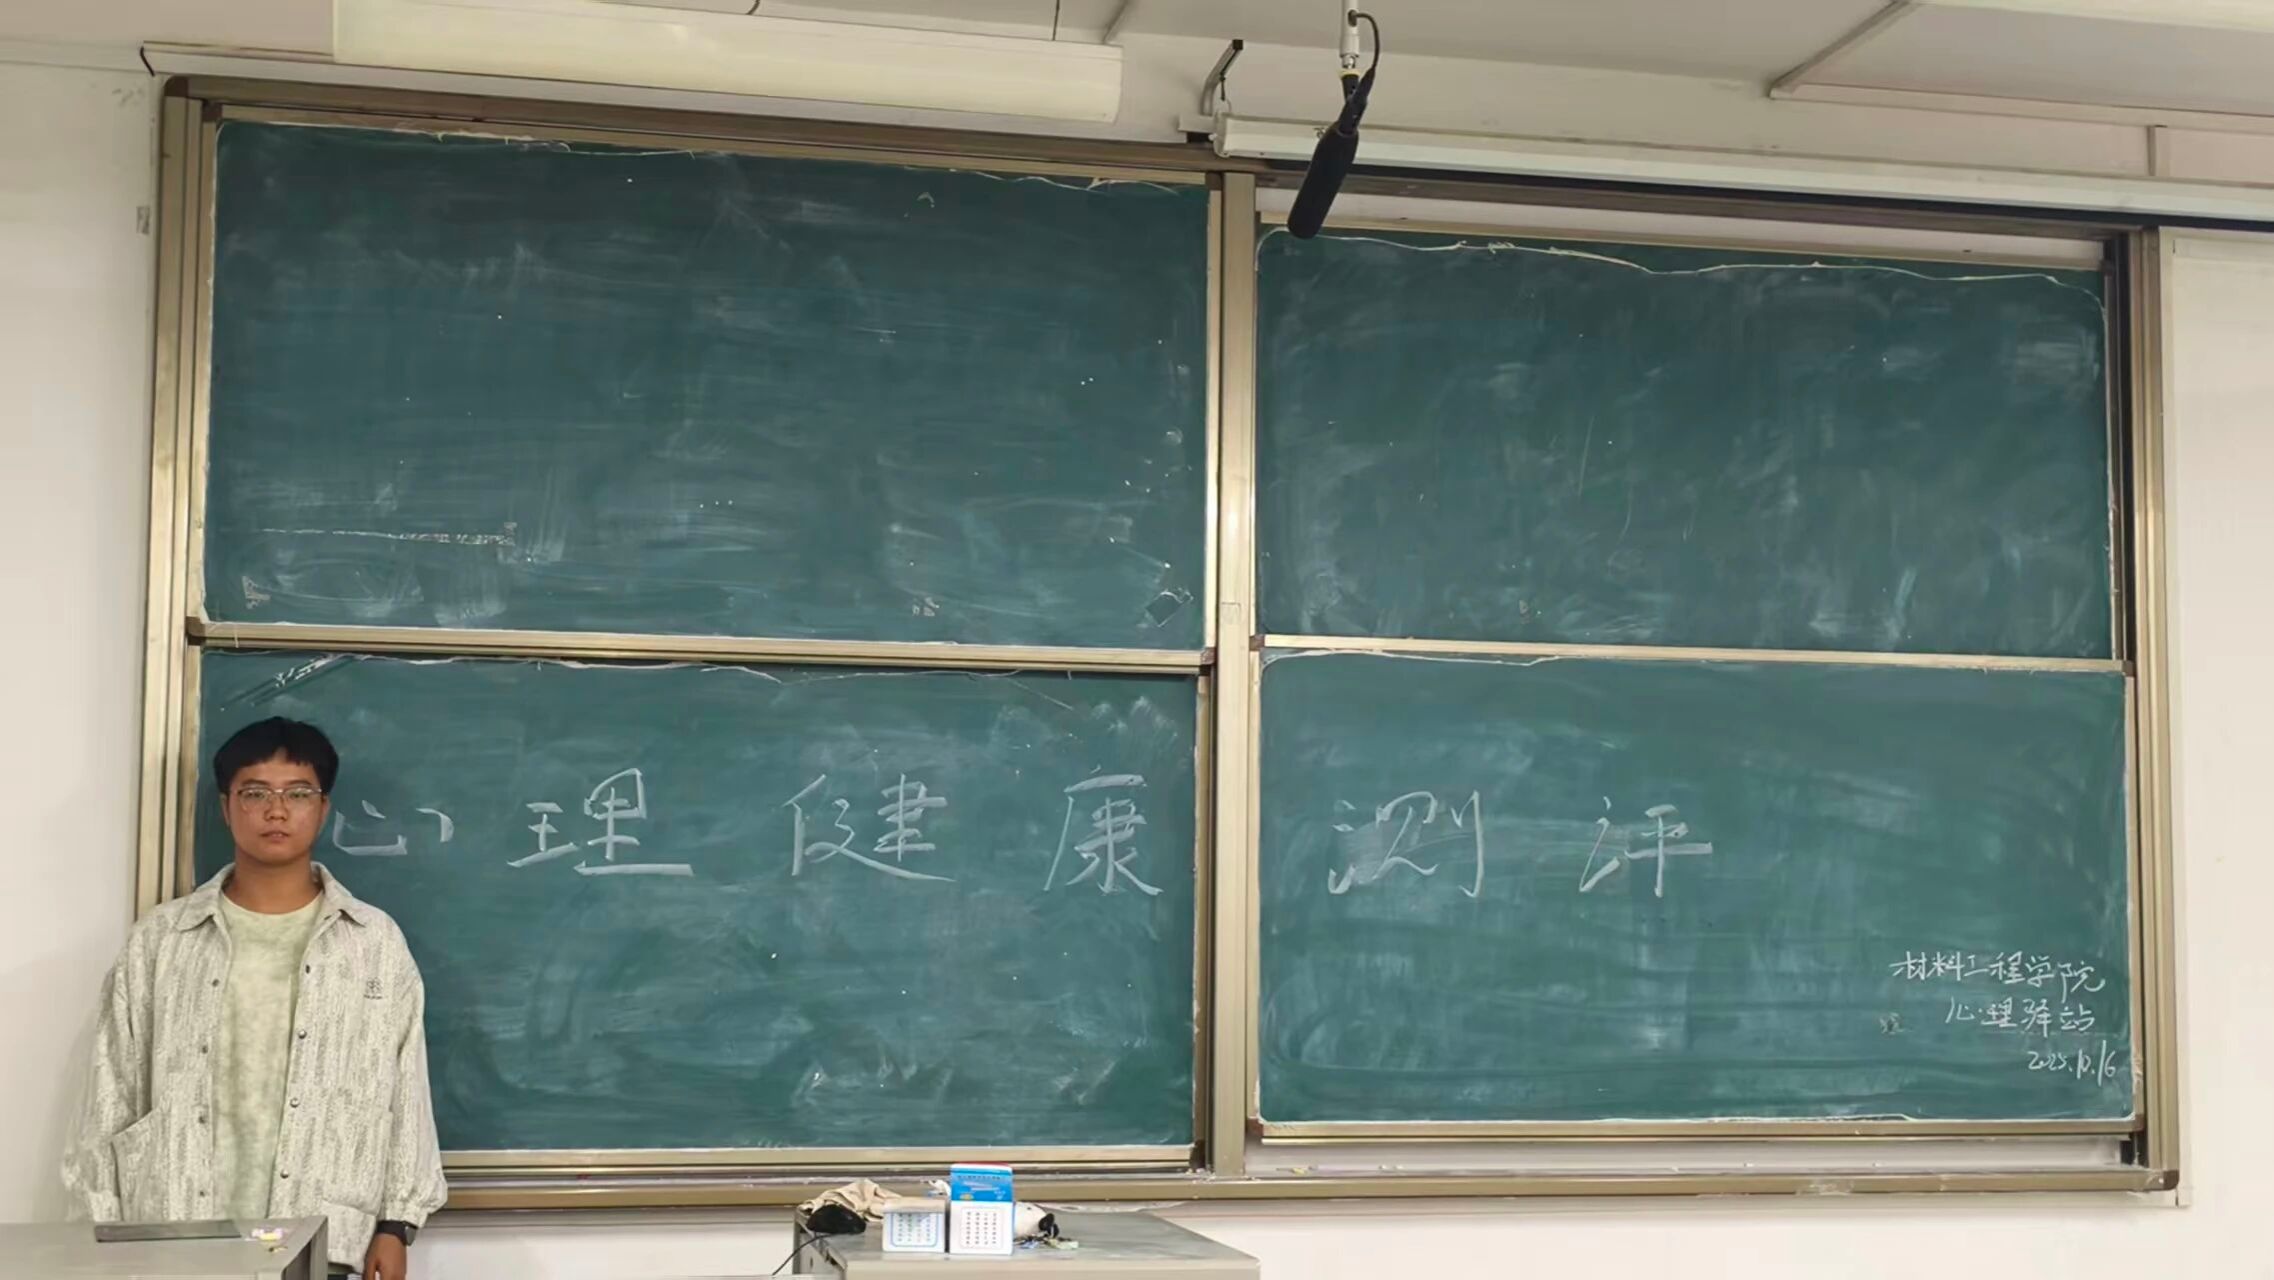 心理健康测评
材料工程学院
心理驿站
2025.10.16